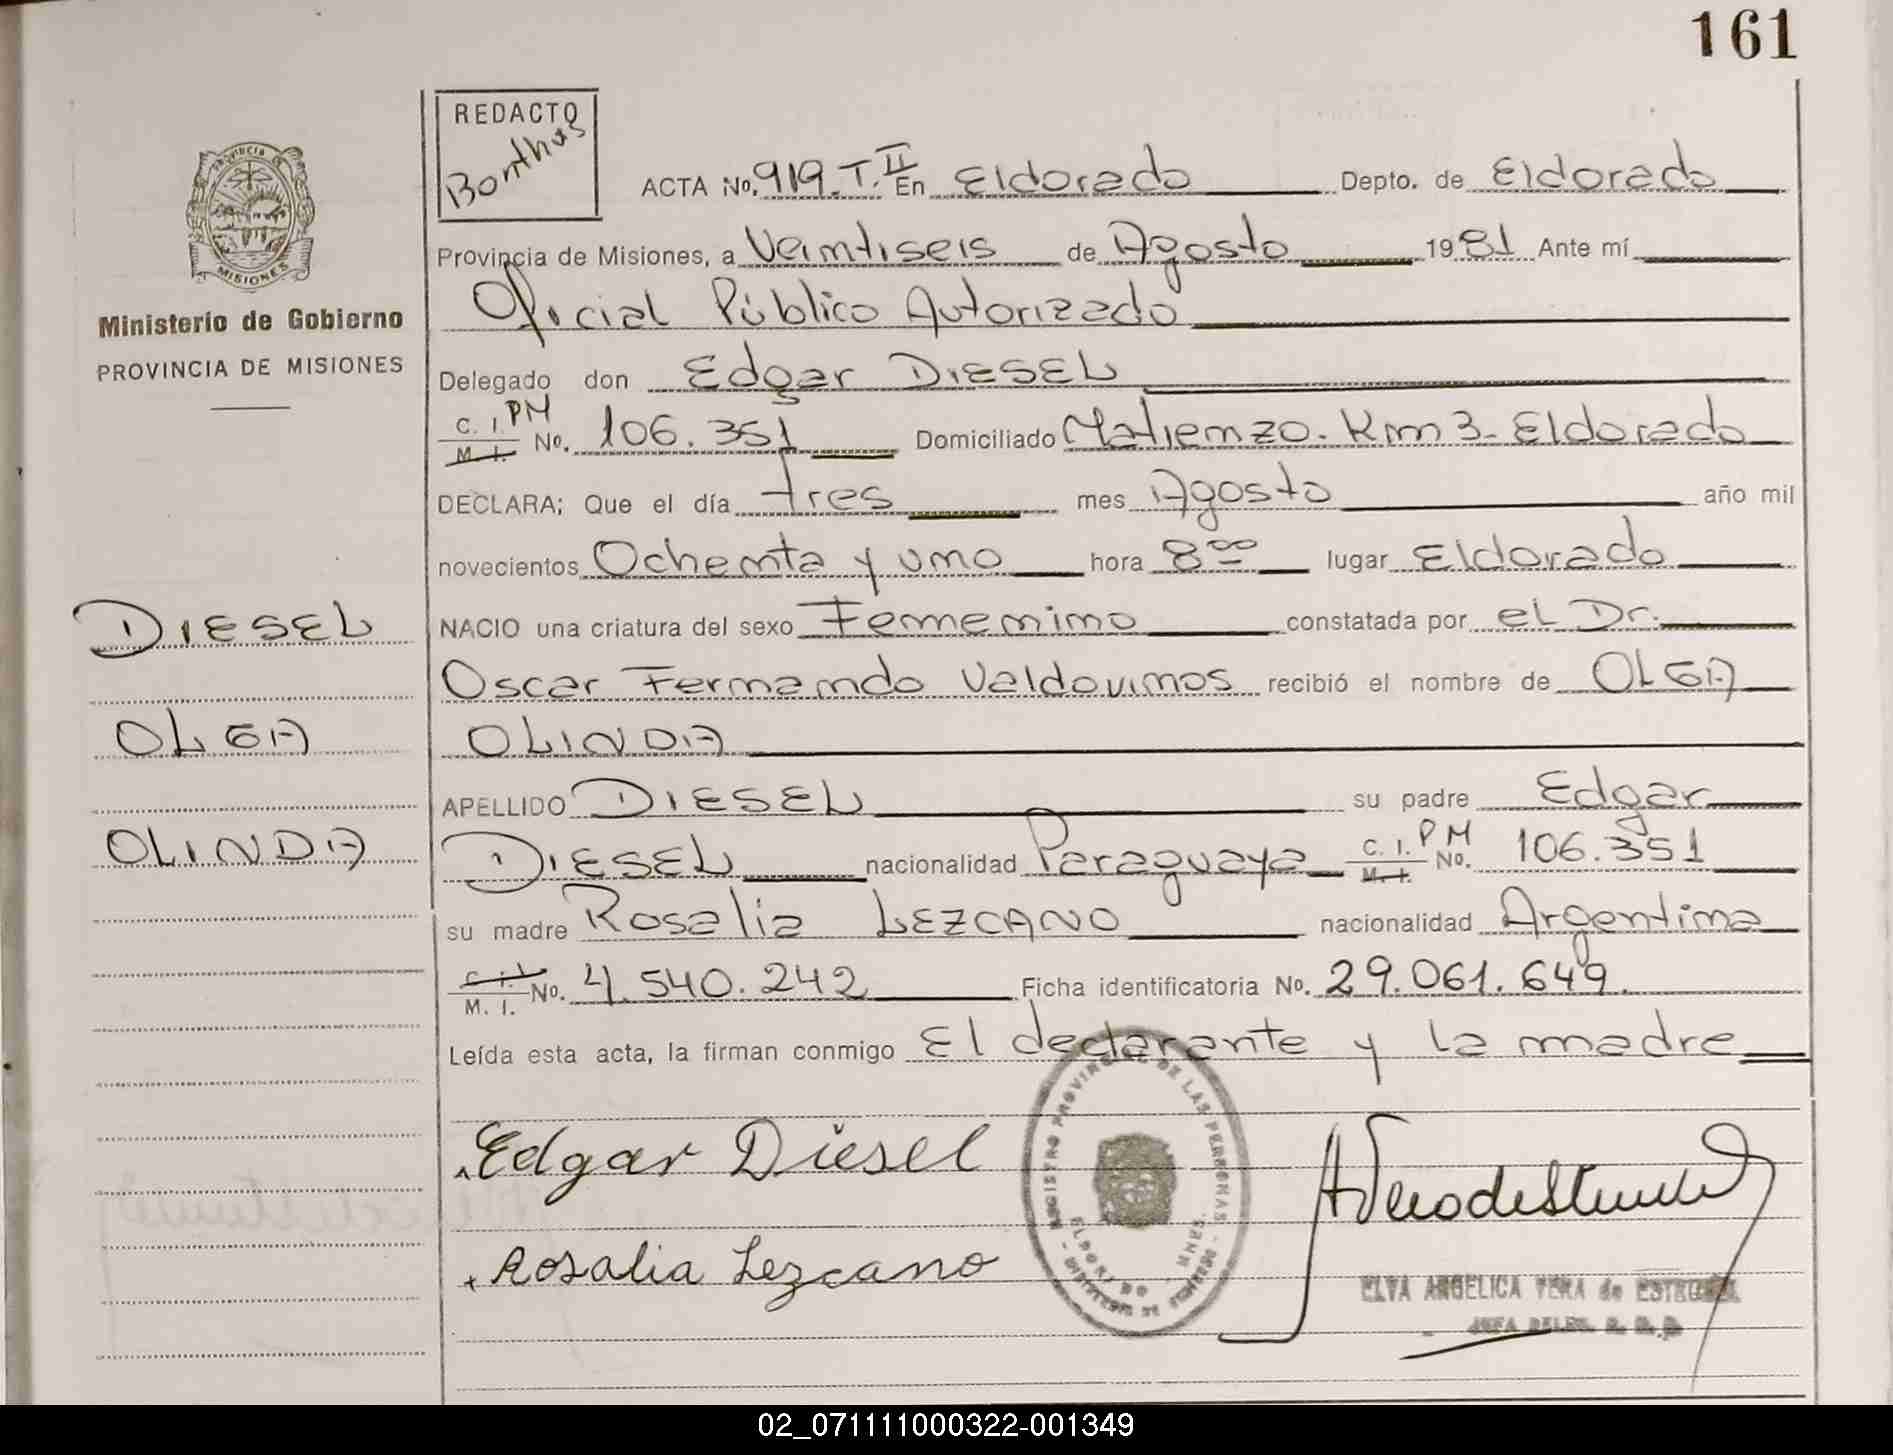 161
REDACTO
Bonthus
PROVINCIA DE
MISIONES
Ministerio de Gobierno
PROVINCIA DE MISIONES
ACTA No. 919. T. II En Eldorado Depto. de Eldorado
Provincia de Misiones, a Veintiseis de Agosto 1981 Ante mí
Oficial Público Autorizado
Delegado don Edgar DIESEL
C. I. PM
M. I. No. 106.351 Domiciliado Matienzo. Km 3- Eldorado
DECLARA; Que el día tres mes Agosto año mil
novecientos Ochenta y uno hora 8 00 lugar Eldorado
DIESEL
NACIO una criatura del sexo Femenino constatada por el Dr.
Oscar Fernando Valdovinos recibió el nombre de OLGA
OLGA
OLINDA
APELLIDO DIESEL su padre Edgar
OLINDA
DIESEL nacionalidad Paraguaya C. I. PM
M. I. No. 106.351
su madre Rosalia LEZCANO nacionalidad Argentina
C. I.
M. I. No. 4.540.242 Ficha identificatoria No. 29.061.649.
Leída esta acta, la firman conmigo El declarante y la madre
Edgar Diesel
Rosalia Lezcano
REGISTRO PROVINCIAL DE LAS PERSONAS
ELDORADO - MNES.
ELVA ANGELICA VERA de
JEFA DELEG. R. D. P.
02_071111000322-001349